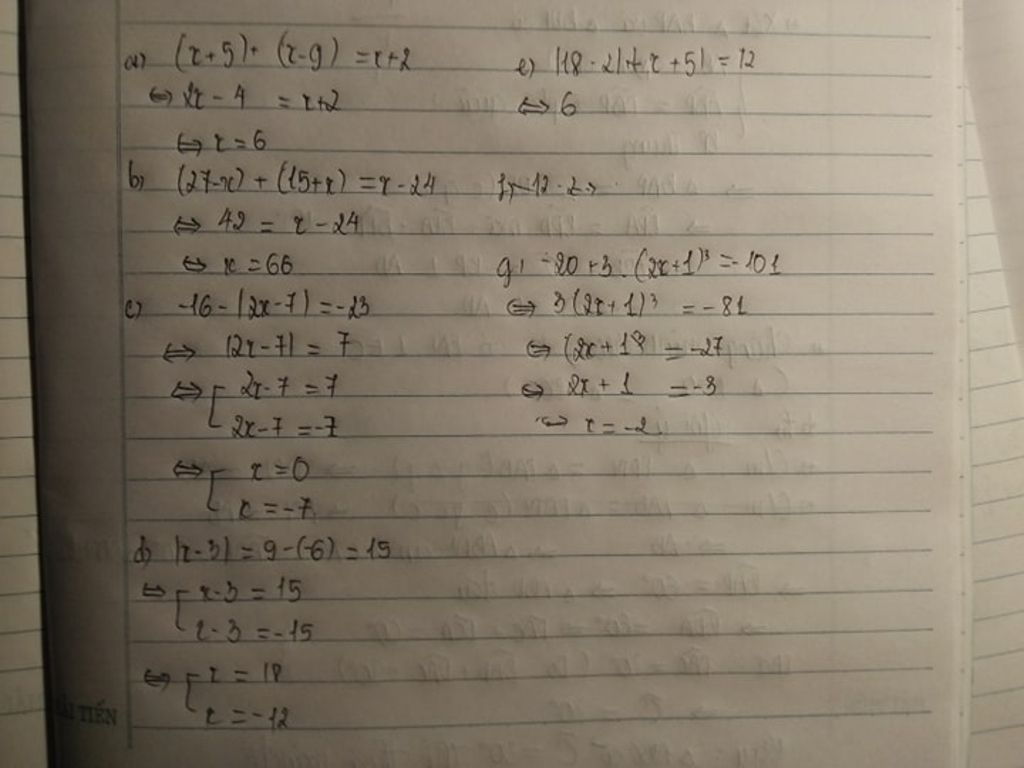 a) (x+5)+ (x-9) = x+2
⇔ 2x - 4 = x+2
⇔ x = 6
b) (27-x) + (15+x) = x - 24
⇔ 42 = x - 24
⇔ x = 66
c) -16 - |2x-7| = -23
⇔ |2x-7| = 7
⇔ [ 2x-7 = 7
2x-7 = -7
⇔ [ x = 0
x = -7
d) |x-3| = 9-(-6) = 15
⇔ [ x-3 = 15
x-3 = -15
⇔ [ x = 18
x = -12
e) |18-2|+|x+5| = 12
⇔ 6
g) -20 + 3.(2x+1)³ = -101
⇔ 3(2x+1)³ = -81
⇔ (2x+1)³ = -27
⇔ 2x+1 = -3
⇔ x = -2
TIẾN